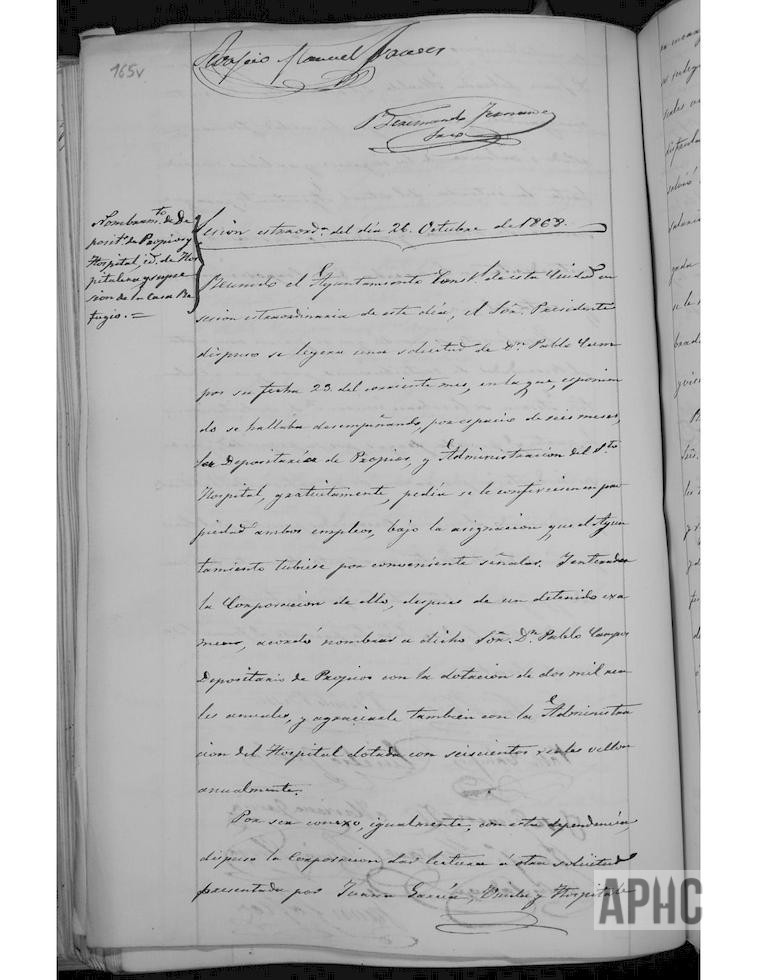 165v
Manuel
Fernando
Nombram.to de De
posit.o de Propios y
Hospital, id. de Hos
pitalera y supre
sion de la Casa Re
fugio. =
Sesion estraord.a del dia 26. Octubre de 1868.
Reunido el Ayuntamiento Const.l de esta Ciudad en
sesion estraordinaria de este dia, el Señ. Presidente
dispuso se leyera una solicitud de Dn Pablo Cam
por su fecha 23. del corriente mes, en la que, esponien
do se hallaba desempeñando, por espacio de seis meses,
la Depositaria de Propios, y Administracion del Sto
Hospital, gratuitamente, pedia se le confiriesen en pro
piedad ambos empleos, bajo la asignacion que el Ayun
tamiento tubiese por conveniente señalar. Enterada
la Corporacion de ello, despues de un detenido exa
men, acordó nombrar a dicho Señ. Dn Pablo Campos
Depositario de Propios con la dotacion de dos mil rea
les anuales, y agraciarle tambien con la Administra
cion del Hospital dotada con seiscientos reales vellon
anualmente.
Por ser conexo, igualmente, con esta dependencia,
dispuso la Corporacion dar lectura á otra solicitud
presentada por Juana Garcia, Viuda y Hospital
APHC